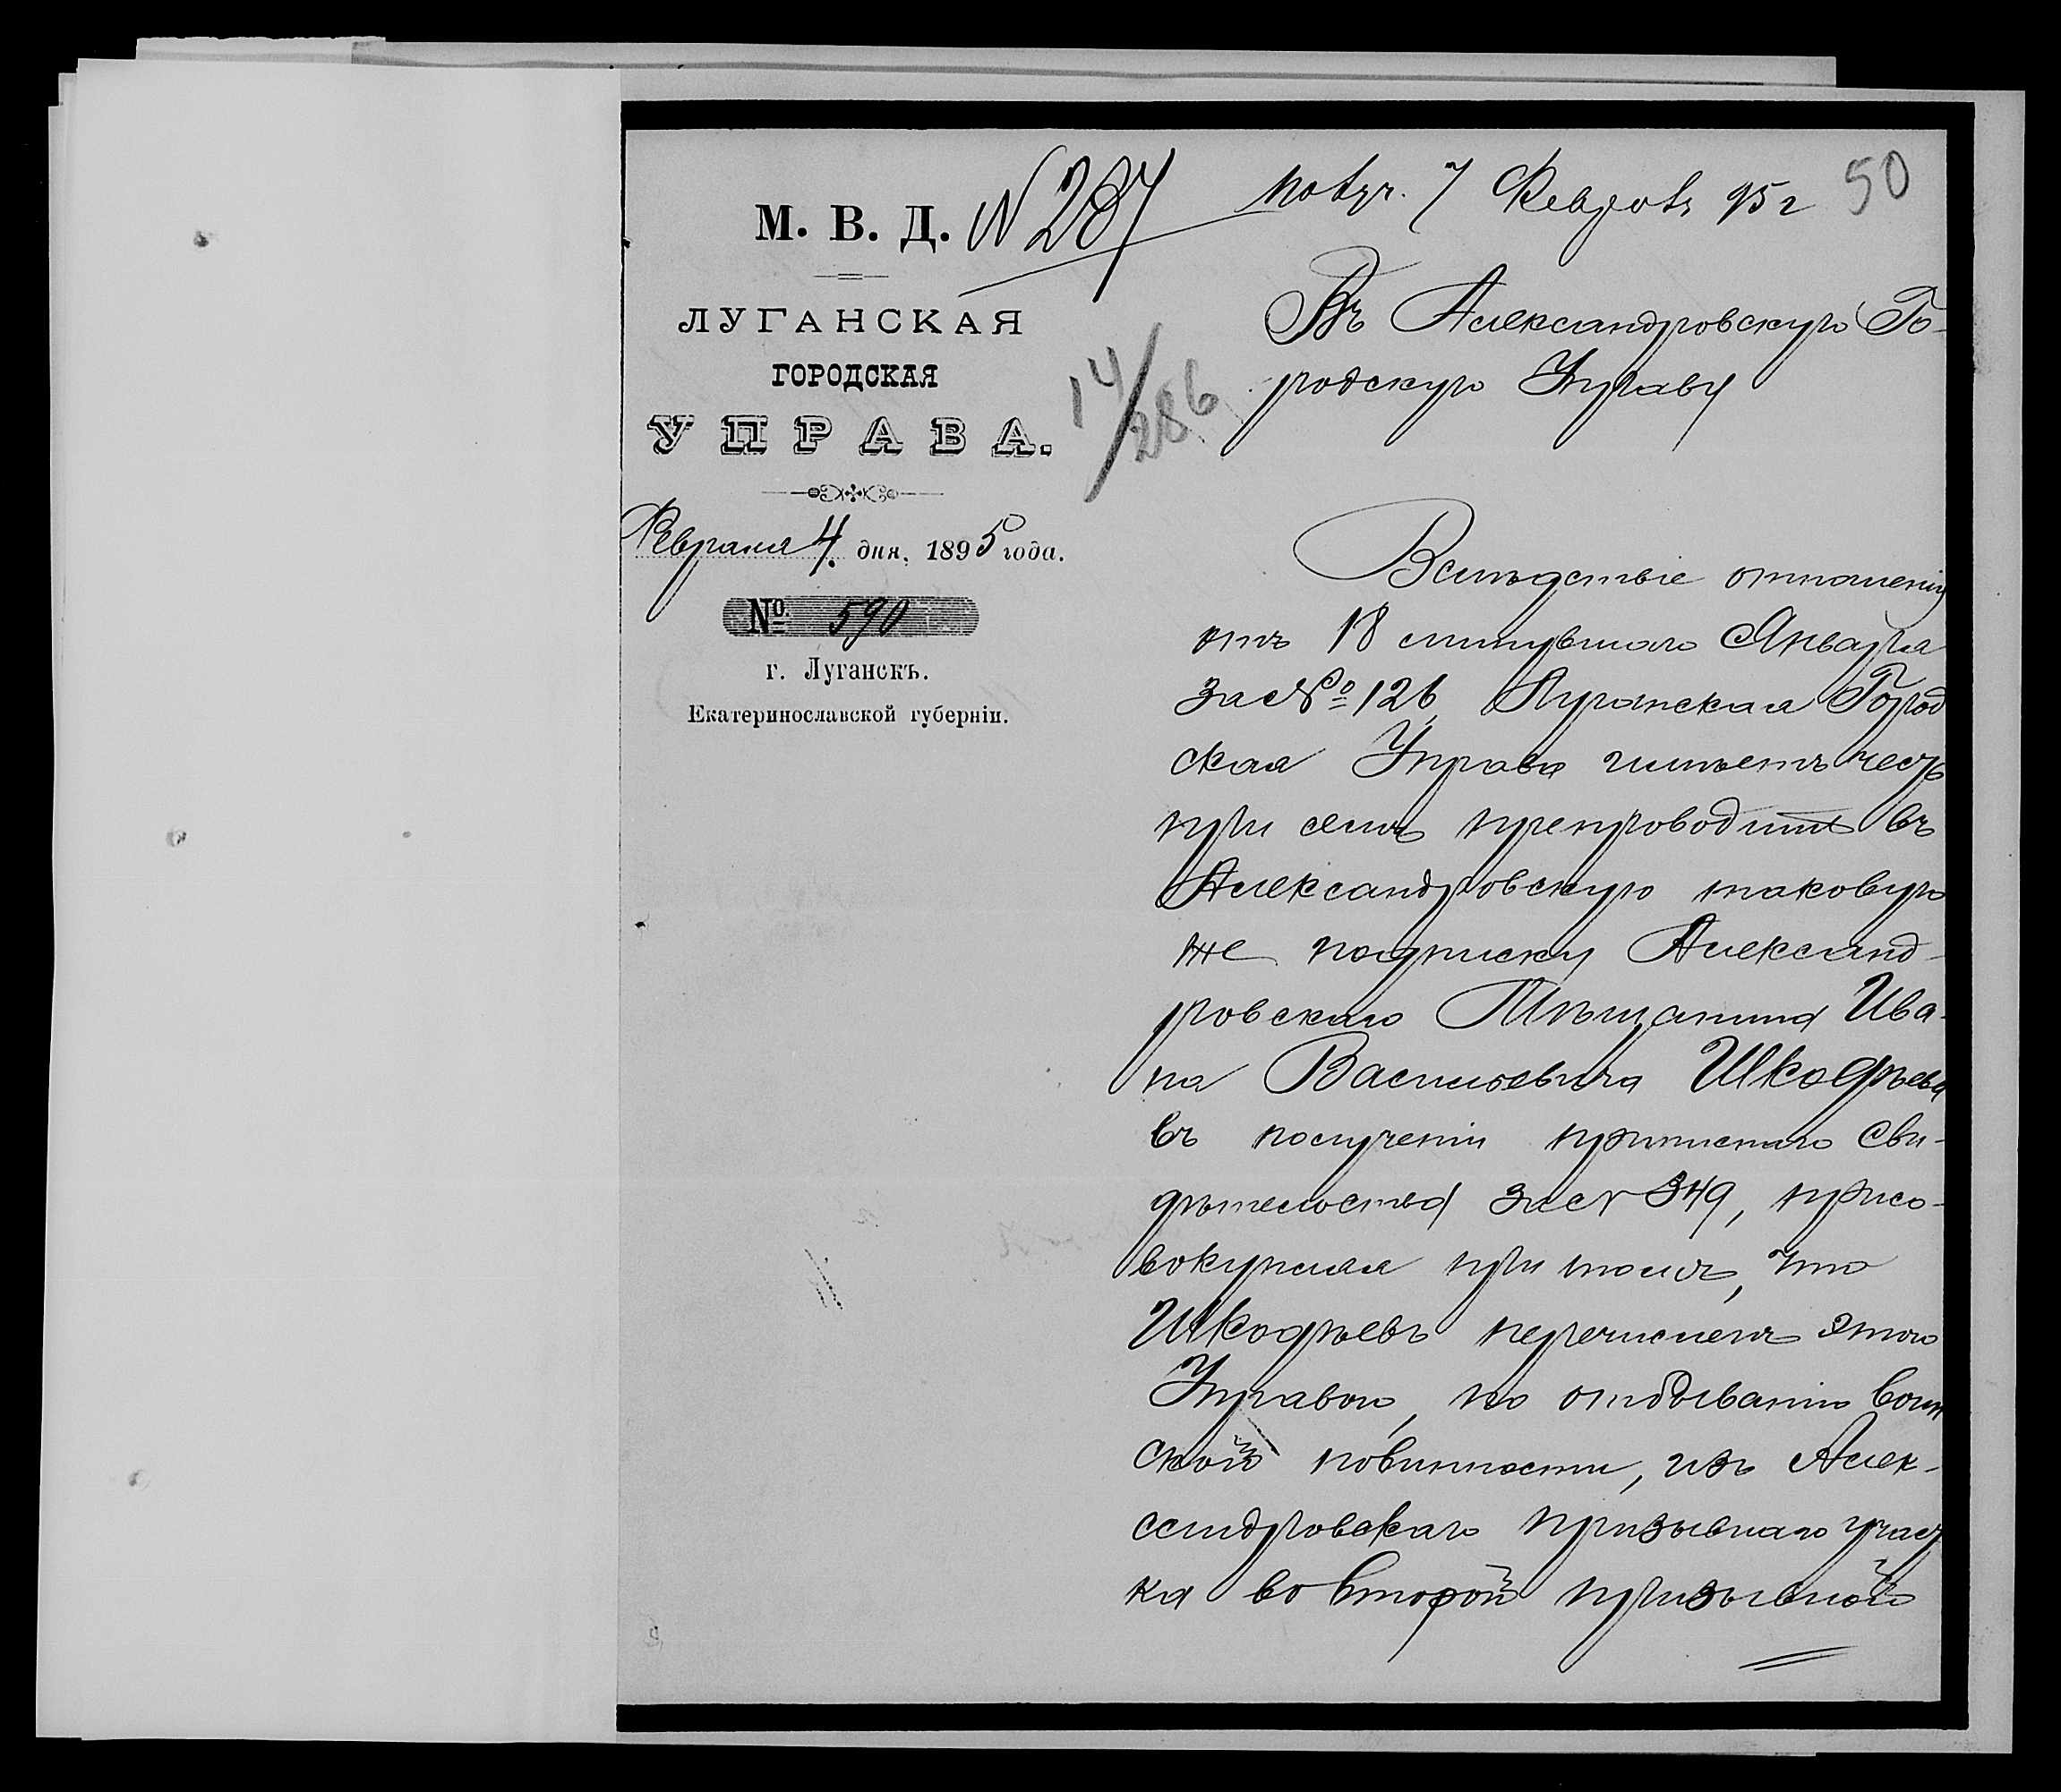 М. В. Д. N 287
Получ. 7 Февраля 95 г
50
ЛУГАНСКАЯ
ГОРОДСКАЯ
УПРАВА.
14/286
Февраля 4 дня, 1895 года.
№ 590
г. Луганскъ.
Екатеринославской губерніи.
Въ Александровскую Го-
родскую Управу
Вслѣдствіе отношенія
отъ 18 минувшаго Января
за № 126, Луганская Город
ская Управа имѣетъ честь
при семъ препроводить въ
Александровскую таковую
же подписку Александ-
ровскаго Мѣщанина Ива-
на Васильевича Шкодрѣева
въ полученіи приписнаго сви-
дѣтельства за N 349, присо-
вокупляя при томъ, что
Шкодрѣевъ перечисленъ этою
Управою, по отбыванію воин
ской повинности, изъ Алек-
сандровскаго призывнаго участ
ка во второй призывной